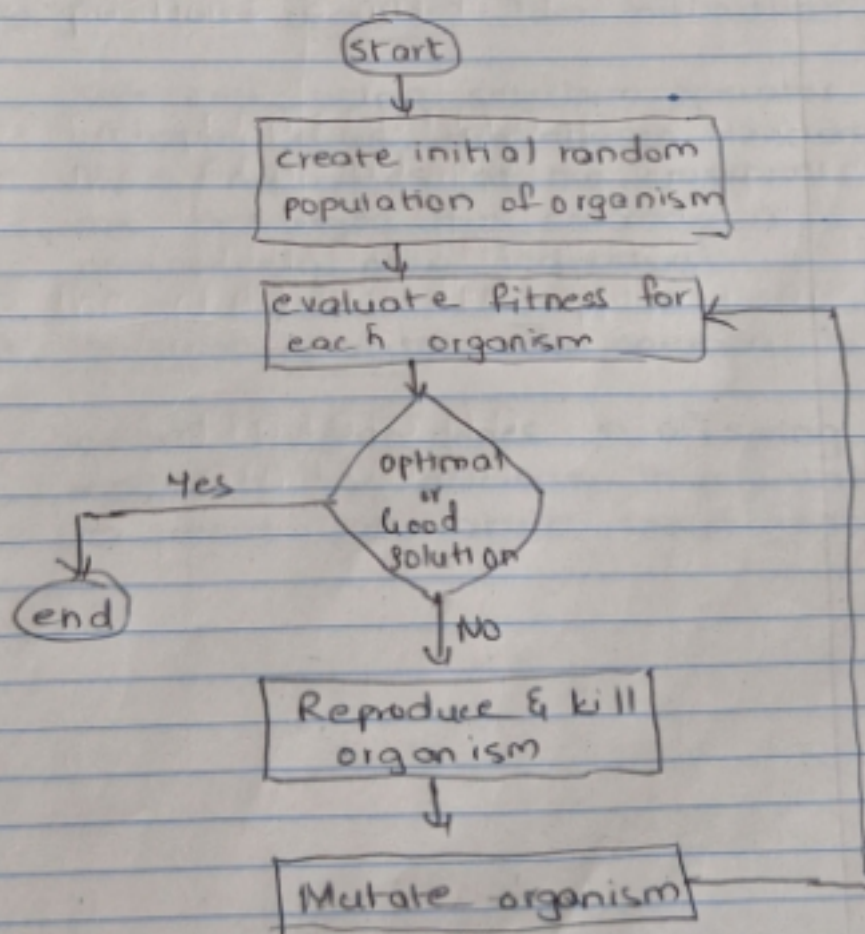 Start
create initial random
population of organism
evaluate fitness for
each organism
optimal
or
Good
solution
Yes
end
No
Reproduce & kill
organism
Mutate organism